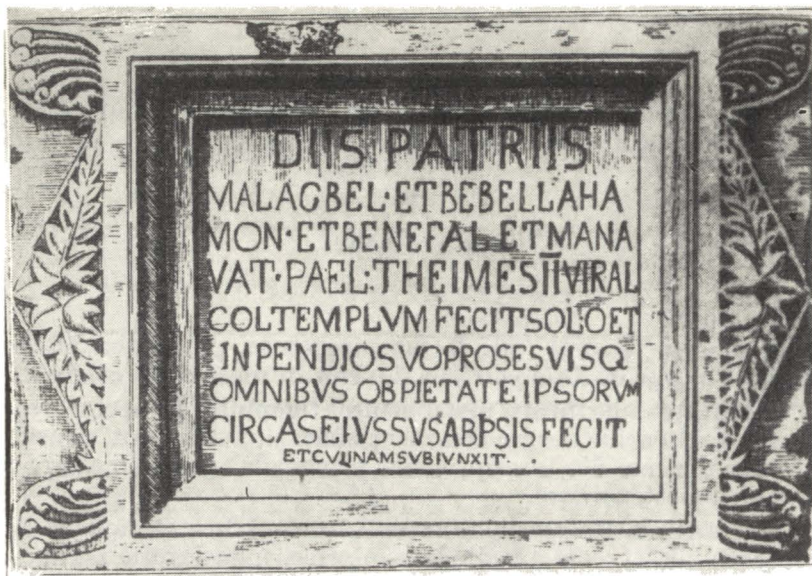 DIIS PATRIIS
MALAGBEL·ETBEBELLAHA
MON·ETBENEFAL·ETMANA
VAT·PAEL·THEIMESĪĪVIRAL
COLTEMPLVM FECITSOLOET
INPENDIOSVOPROSESVISQ
OMNIBVS OBPIETATEIPSORVM
CIRCASEIVSSVSABIPSIS FECIT
ETCVLINAMSVBIVNXIT·